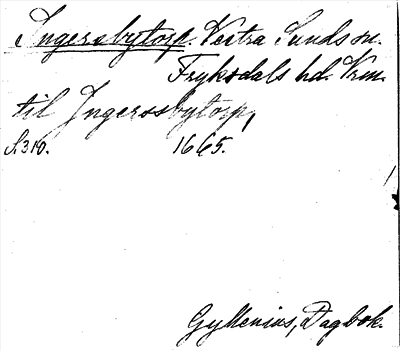 Ingersbytorp. Vestra Sunds sn.
Fryksdals hd. Vrm.
til Jngerssbytorp,
S. 310. 1665.
Gyllenius, Dagbok.